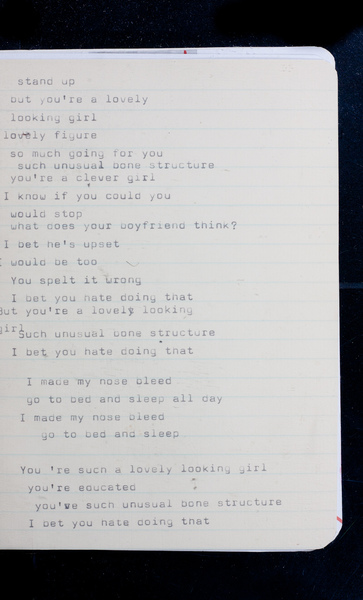 stand up
but you're a lovely
looking girl
lovely figure
so much going for you
such unusual bone structure
you're a clever girl
I know if you could you
would stop
what does your boyfriend think?
I bet he's upset
I would be too
You spelt it wrong
I bet you hate doing that
But you're a lovely looking
girl
Such unusual bone structure
I bet you hate doing that
I made my nose bleed
go to bed and sleep all day
I made my nose bleed
go to bed and sleep
You 're such a lovely looking girl
you're educated
you've such unusual bone structure
I bet you hate doing that